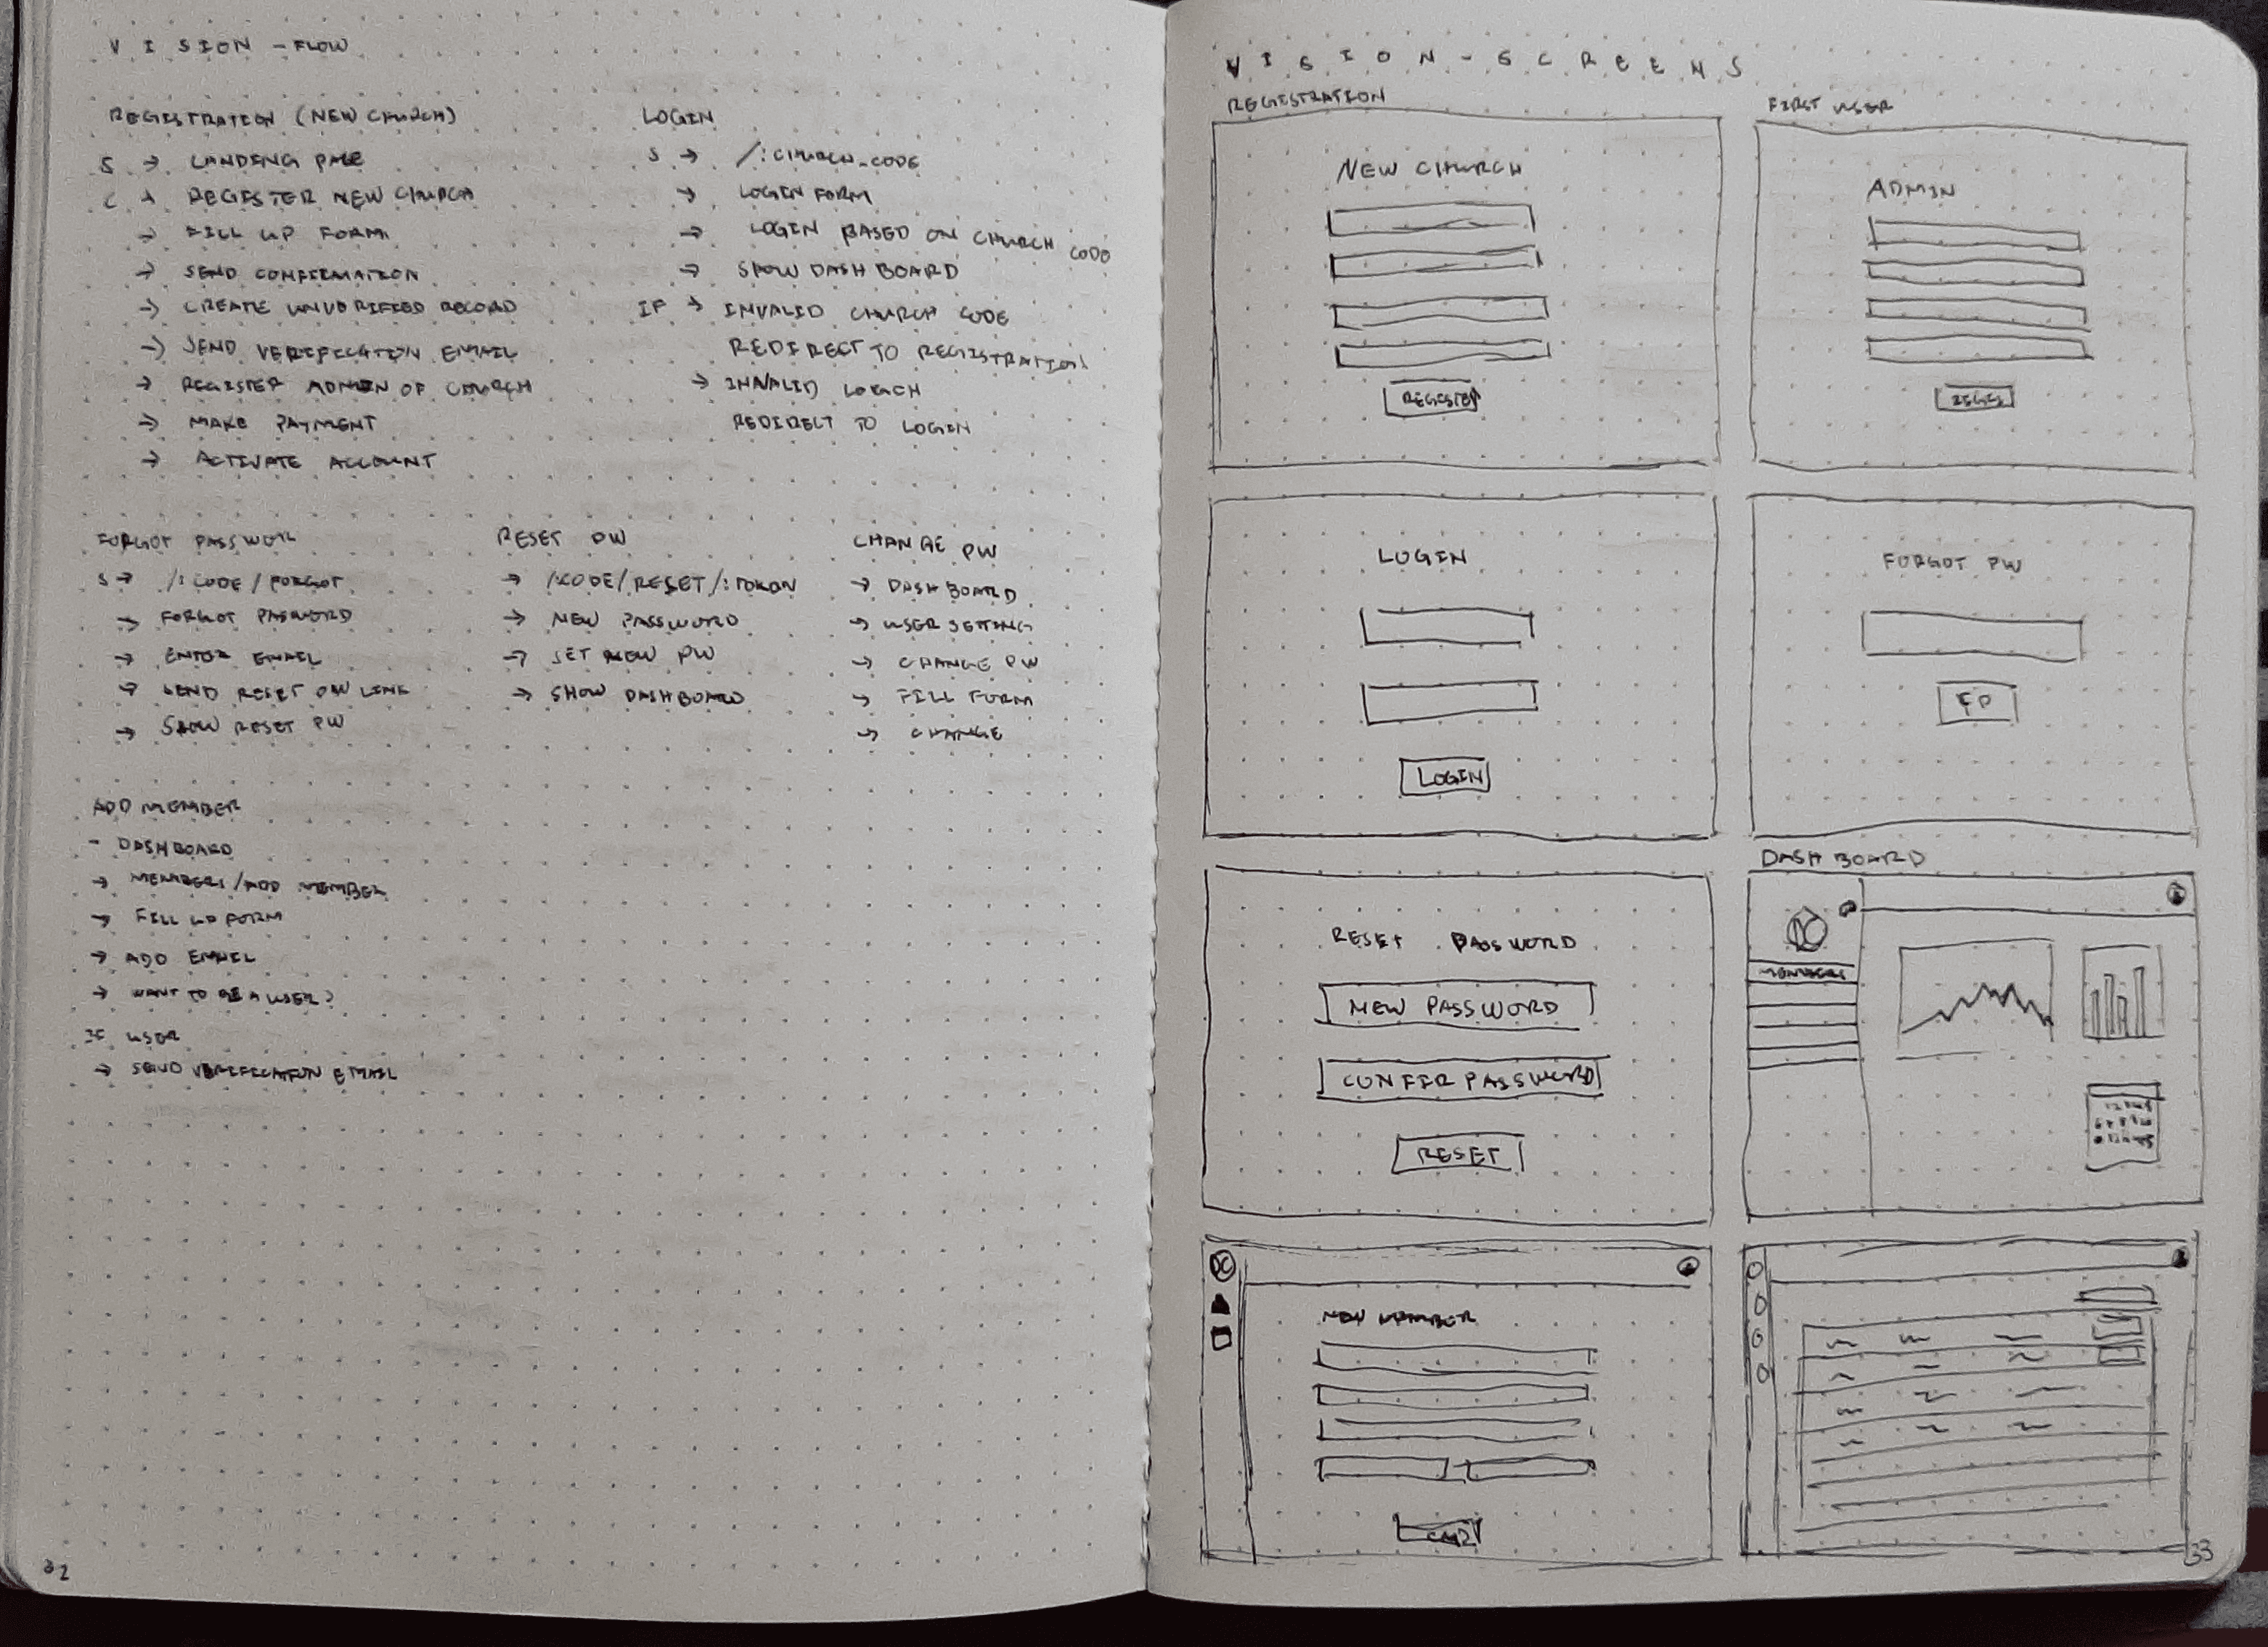 VISION - FLOW
REGISTRATION (NEW CHURCH)
S → LANDING PAGE
C → REGISTER NEW CHURCH
→ FILL UP FORM
→ SEND CONFIRMATION
→ CREATE UNVERIFIED RECORD
→ SEND VERIFICATION EMAIL
→ REGISTER ADMIN OF CHURCH
→ MAKE PAYMENT
→ ACTIVATE ACCOUNT
LOGIN
S → /:CHURCH_CODE
→ LOGIN FORM
→ LOGIN BASED ON CHURCH CODE
→ SHOW DASHBOARD
IF → INVALID CHURCH CODE
REDIRECT TO REGISTRATION
→ INVALID LOGIN
REDIRECT TO LOGIN
FORGOT PASSWORD
S → /:CODE/FORGOT
→ FORGOT PASSWORD
→ ENTER EMAIL
→ SEND RESET PW LINK
→ SHOW RESET PW
RESET PW
→ /:CODE/RESET/:TOKEN
→ NEW PASSWORD
→ SET NEW PW
→ SHOW DASHBOARD
CHANGE PW
→ DASHBOARD
→ USER SETTING
→ CHANGE PW
→ FILL FORM
→ CHANGE
ADD MEMBER
- DASHBOARD
→ MEMBERS/ADD MEMBER
→ FILL UP FORM
→ ADD EMAIL
→ WANT TO BE A USER?
IF USER
→ SEND VERIFICATION EMAIL
32
VISION - SCREENS
REGISTRATION
NEW CHURCH
REGISTER
FIRST USER
ADMIN
REGIS
LOGIN
LOGIN
FORGOT PW
FP
RESET PASSWORD
NEW PASSWORD
CONFIR PASSWORD
RESET
DASHBOARD
DC
MEMBERS
DC
NEW MEMBER
33